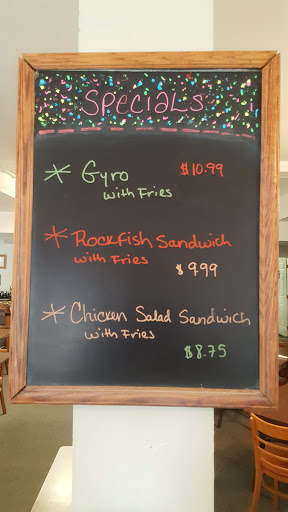 Specials
* Gyro $10.99
with Fries
* Rockfish Sandwich
with Fries
$9.99
* Chicken Salad Sandwich
with Fries
$8.75